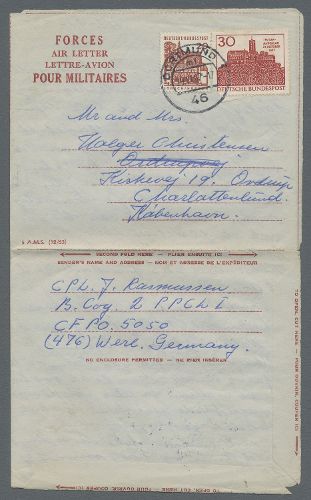 FORCES
AIR LETTER
LETTRE-AVION
POUR MILITAIRES
DEUTSCHE BUNDESPOST
30
DEUTSCHE BUNDESPOST
DORTMUND
46
Mr and Mrs.
Holger Christensen
Ordrupvej
Kirkevej 19. Ordrup
Charlottenlund.
København.
(12/53)
SECOND FOLD HERE — PLIER ENSUITE ICI
SENDER'S NAME AND ADDRESS — NOM ET ADRESSE DE L'EXPÉDITEUR
CPL. J. Rasmussen
B. Coy. 2 P.P.C.L.I
C.F.P.O. 5050
(476) Werl. Germany.
NO ENCLOSURE PERMITTED — NE RIEN INSÉRER
TO OPEN, CUT HERE — POUR OUVRIR, COUPER ICI
TO OPEN, CUT HERE — POUR OUVRIR, COUPER ICI